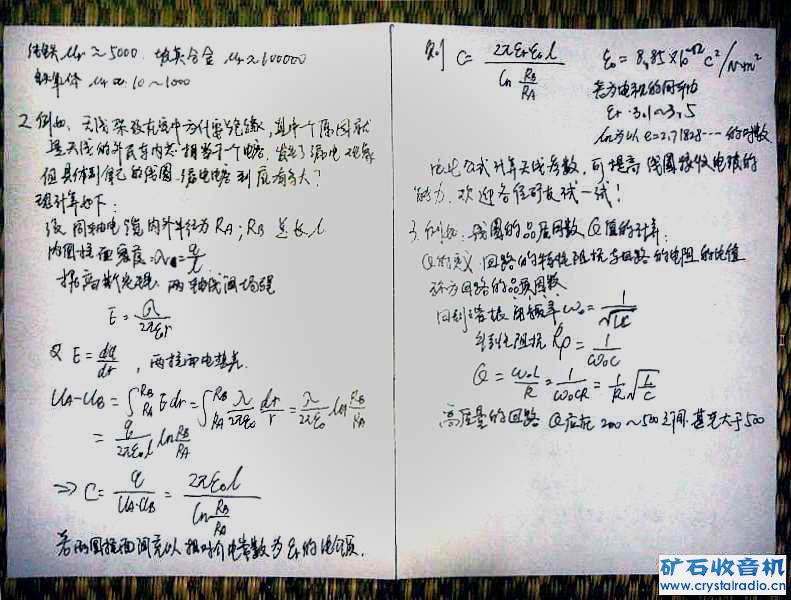 μr≈5000. 坡莫合金 μr≈100000
μr≈10~1000
2. 例如, 天线架设在空中为什么要绝缘, 其中一个原因就
是天线的外皮与内芯相当于一个电容, 发生了漏电现象
但具体到自己的线圈, 漏电电容到底有多大?
现计算如下:
设同轴电缆内外半径为 RA; RB 总长 l
内圆柱面密度: λ=q/l
两轴线间场强
E=λ/2πεr
又 E=du/dr, 两柱面电势差.
UA-UB=∫RA RB Edr=∫RA RB λ/2πε0 dr/r=λ/2πε0 ln RB/RA
=q/2πε0l ln RB/RA
=> C=q/UA-UB=2πε0l/ln RB/RA
若两圆柱面间充以相对介电常数为 εr 的绝缘.
则 C=2πεrε0l/ln RB/RA ε0=8.85×10⁻¹² C²/N·m²
εr:3.1~3.5
ln为以e=2.71828……的对数
依此公式计算天线参数, 可提高线圈接收电磁的
能力. 欢迎各位朋友试一试!
3. 例如: 线圈的品质因数 Q 值的计算:
Q的定义: 回路的特性阻抗与回路的电阻的比值
称为回路的品质因数
回到谐振角频率 ω0=1/√LC
特性阻抗 ρ=1/ω0C
Q=ω0L/R=1/ω0CR=1/R√L/C
高质量的回路 Q应在 200~500之间. 甚至大于500
矿石收音机
www.crystalradio.cn